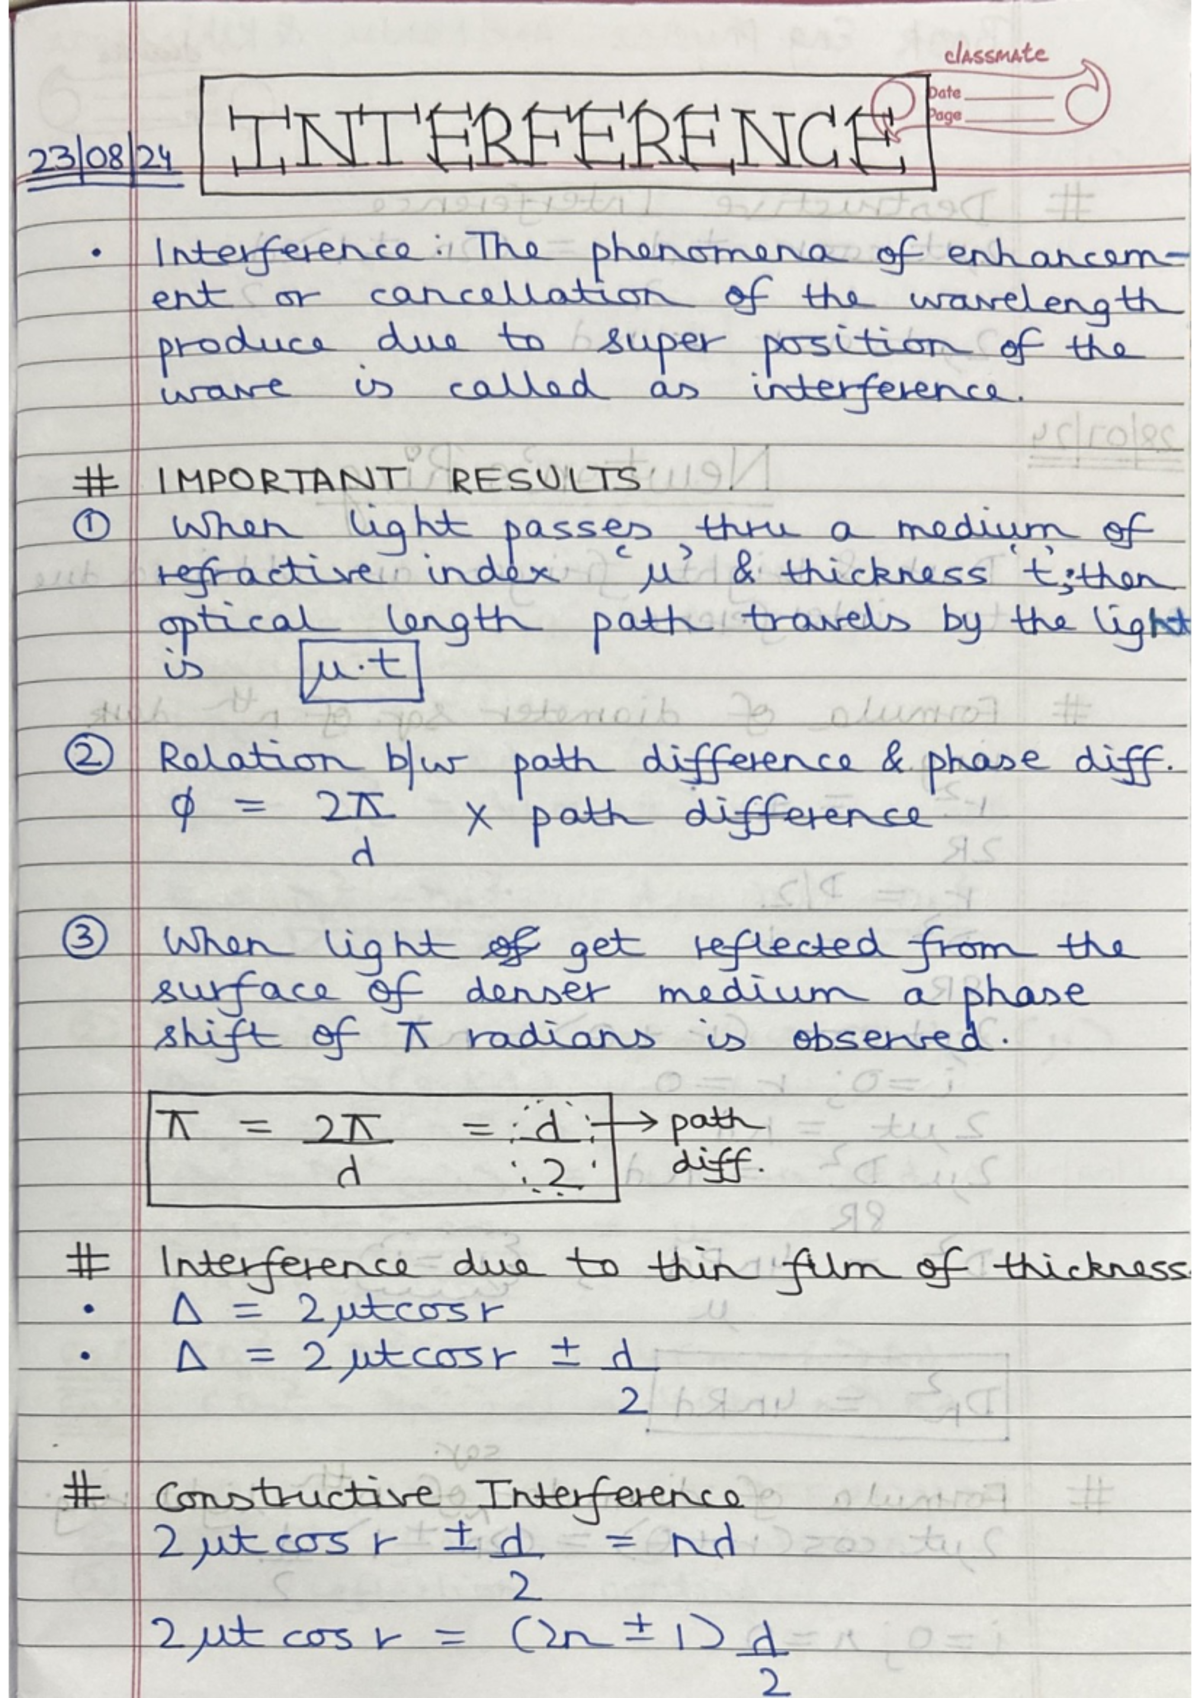 classmate
Date
Page
INTERFERENCE
23/08/24
• Interference : The phenomena of enhancem-
ent or cancellation of the wavelength
produce due to super position of the
wave is called as interference.
# IMPORTANT RESULTS
① When light passes thru a medium of
refractive index 'μ' & thickness 't'; then
optical length path travels by the light
is μ·t
② Relation b/w path difference & phase diff.
φ = 2π/d × path difference
③ When light of get reflected from the
surface of denser medium a phase
shift of π radians is observed.
π = 2π/d = d/2 → path
diff.
# Interference due to thin film of thickness
• Δ = 2μtcosr
• Δ = 2μtcosr ± d/2
# Constructive Interference
2μt cos r ± d/2 = nd
2μt cos r = (2n ± 1) d/2